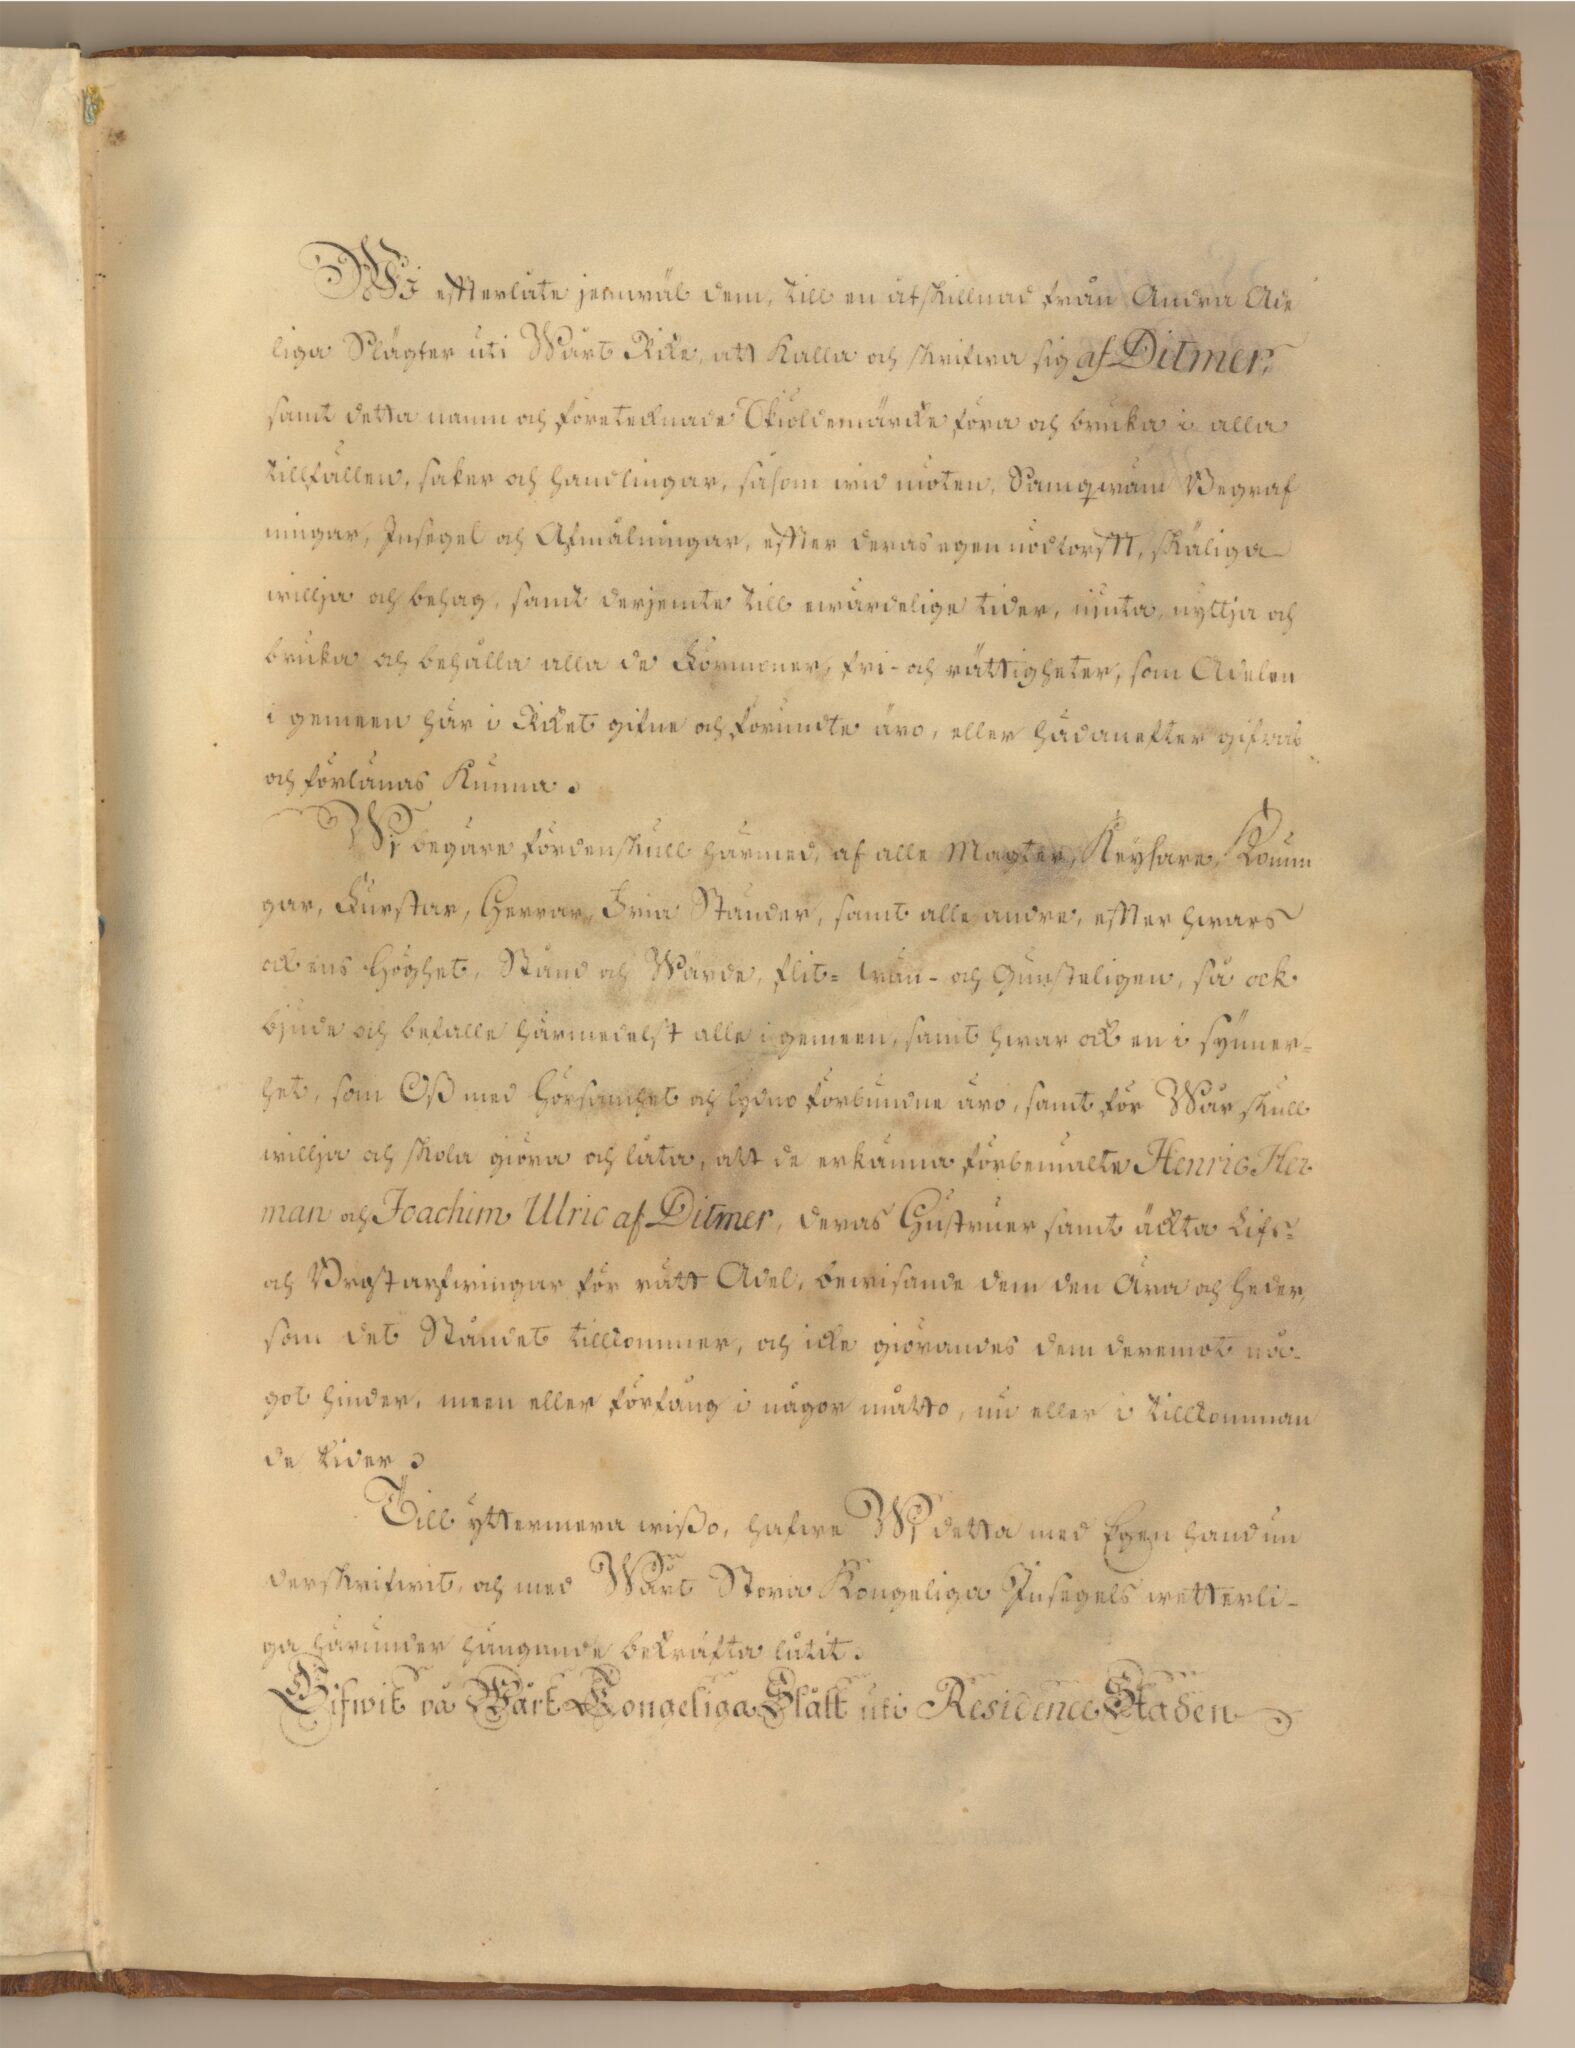 Wi effterlåte jemwäl dem, till en åtskillnad från Andra Ade
liga Slägter uti Wårt Rike, att kalla och skrifwa sig af Ditmer,
samt detta namn och företeknade Skiöldemärcke föra och bruka i alla
tillfällen, saker och handlingar, såsom wid möten, Samqwäm Begraf
ningar, Insegel och Afmålningar, effter deras egen nödtorfft, skäliga
willja och behag, samt derjemte till ewärdelige tider, niuta, nyttja och
bruka och behålla alla de Förmoner, fri- och rättigheter, som Adelen
i gemeen här i Riket gifne och förundte äro, eller hädanefter gifwas
och förlänas kunna.
Wi begäre fördenskull härmed, af alle Magter, Keysare, Konun
gar, Furstar, Herrar, Fria Ständer, samt alle andre, effter hwars
ock ens Höghet, Stånd och Wärde, flit= wän- och Gunsteligen, så ock
bjude och befalle härmedelst alle i gemeen, samt hwar ock en i synner=
het, som Oß med Hörsamhet och lydno förbundne äro, samt för Wår skull
willja och skola giöra och låta, att de erkänna förbemälte Henric Her
man och Joachim Ulric af Ditmer, deras Hustruer samt äckta Lifs=
och Bröstarfwingar för rätt Adel, bewisande dem den Ära och heder,
som det Ståndet tillkommer, och icke giörandes dem deremot nå-
got hinder, meen eller förfång i någor måtto, nu eller i tillkomman
de tider.
Till yttermera wißo, hafwe Wi detta med Egen hand un
derskrifwit, och med Wårt Stora Kongeliga Insegels wetterli-
ga härunder hängande bekräfta låtit.
Gifwit på Wårt Kongeliga Slått uti Residence Staden